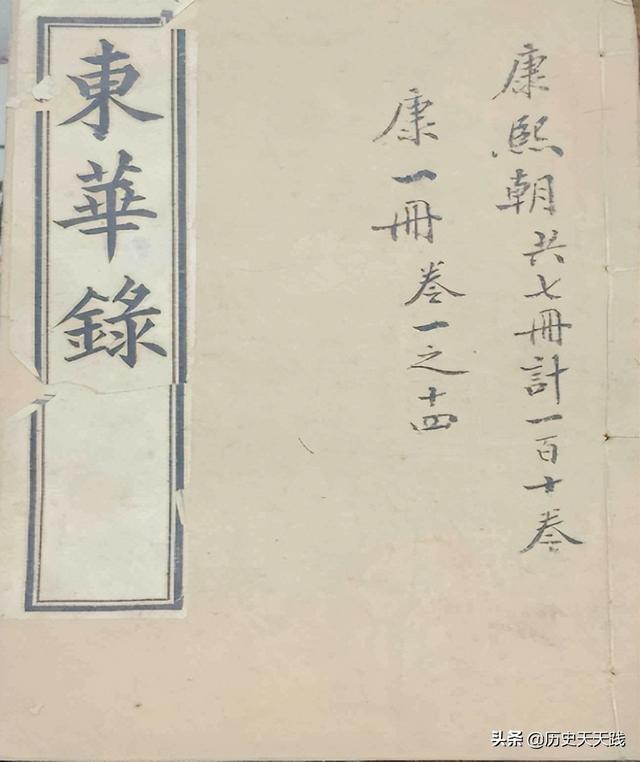 東華錄
康熙朝共七冊計一百十卷
康一冊 卷一之十四
头条 @历史天天践